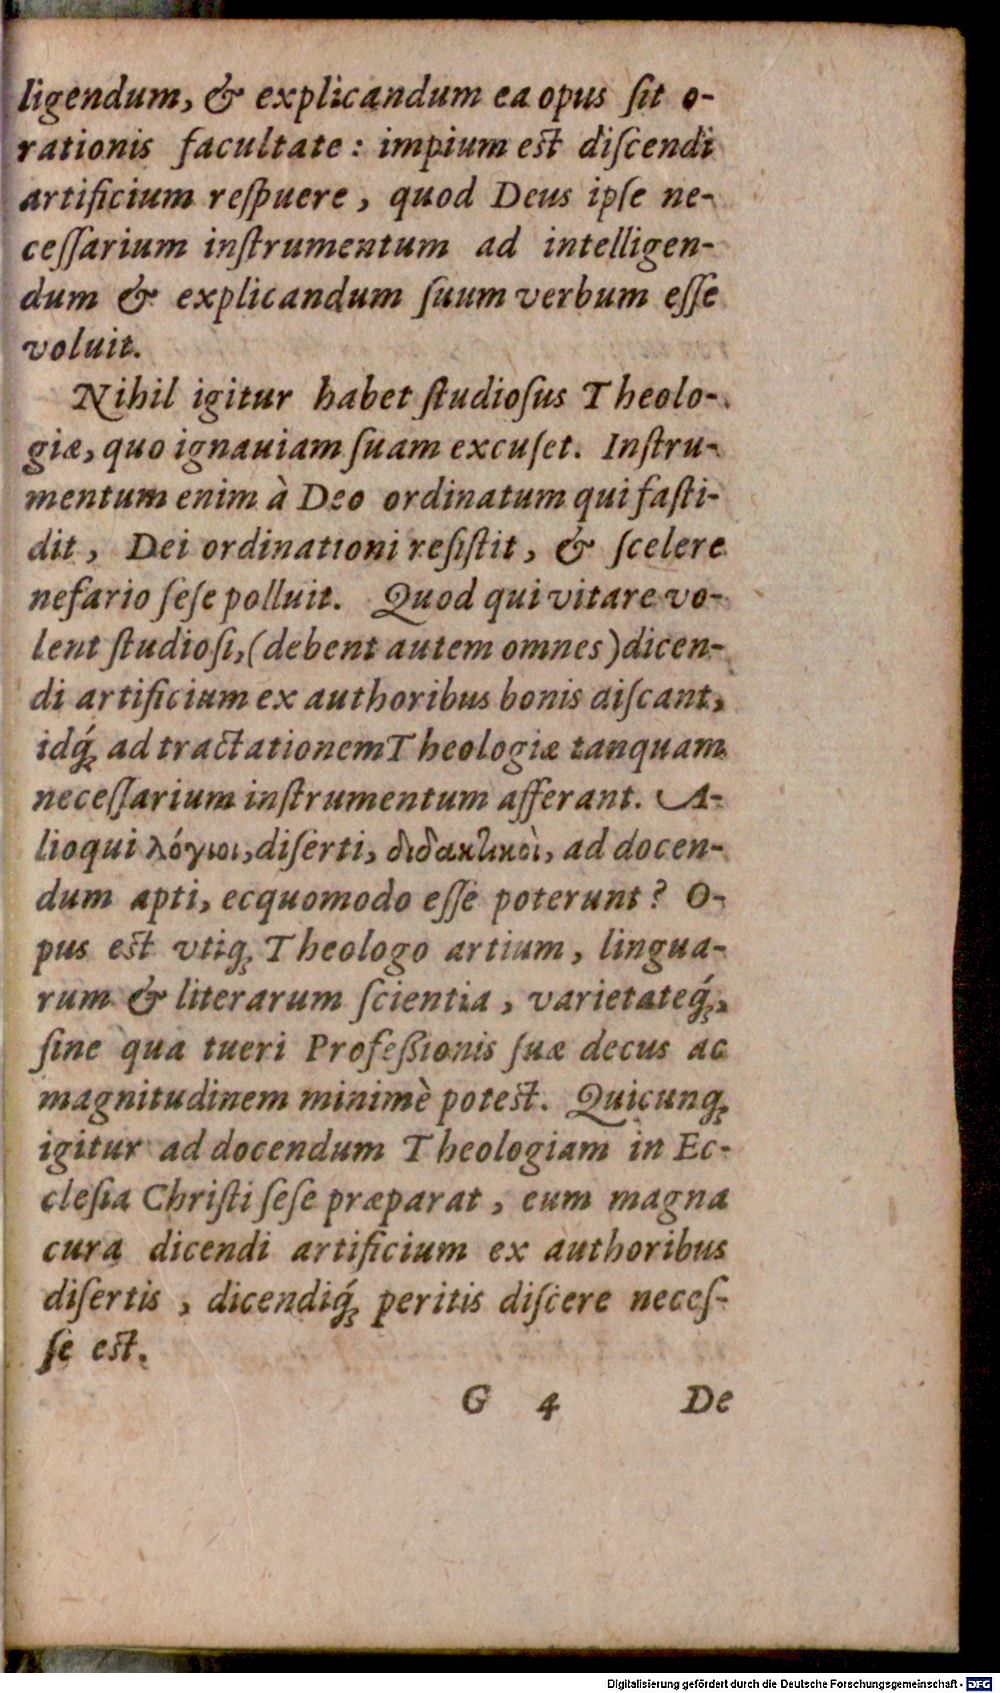 ligendum, & explicandum ea opus ſit o-
rationis facultate: impium est diſcendi
artificium reſpuere, quod Deus ipſe ne-
ceſſarium inſtrumentum ad intelligen-
dum & explicandum ſuum verbum eſſe
voluit.
Nihil igitur habet ſtudioſus Theolo-
giæ, quo ignauiam ſuam excuſet. Inſtru-
mentum enim à Deo ordinatum qui faſti-
dit, Dei ordinationi reſiſtit, & ſcelere
nefario ſeſe polluit. Quod qui vitare vo-
lent ſtudioſi, (debent autem omnes) dicen-
di artificium ex authoribus bonis diſcant,
idq́; ad tractationem Theologiæ tanquam
neceſſarium inſtrumentum afferant. A-
lioqui λόγιοι, diſerti, διδακτικοὶ, ad docen-
dum apti, ecquomodo eſſe poterunt? O-
pus est vtiq; Theologo artium, lingua-
rum & literarum ſcientia, varietateq́;,
ſine qua tueri Profeßionis ſuæ decus ac
magnitudinem minimè potest. Quicunq;
igitur ad docendum Theologiam in Ec-
cleſia Chriſti ſeſe præparat, eum magna
cura dicendi artificium ex authoribus
diſertis, dicendiq́; peritis diſcere neceſ-
ſe est.
G 4 De
Digitalisierung gefördert durch die Deutsche Forschungsgemeinschaft - DFG